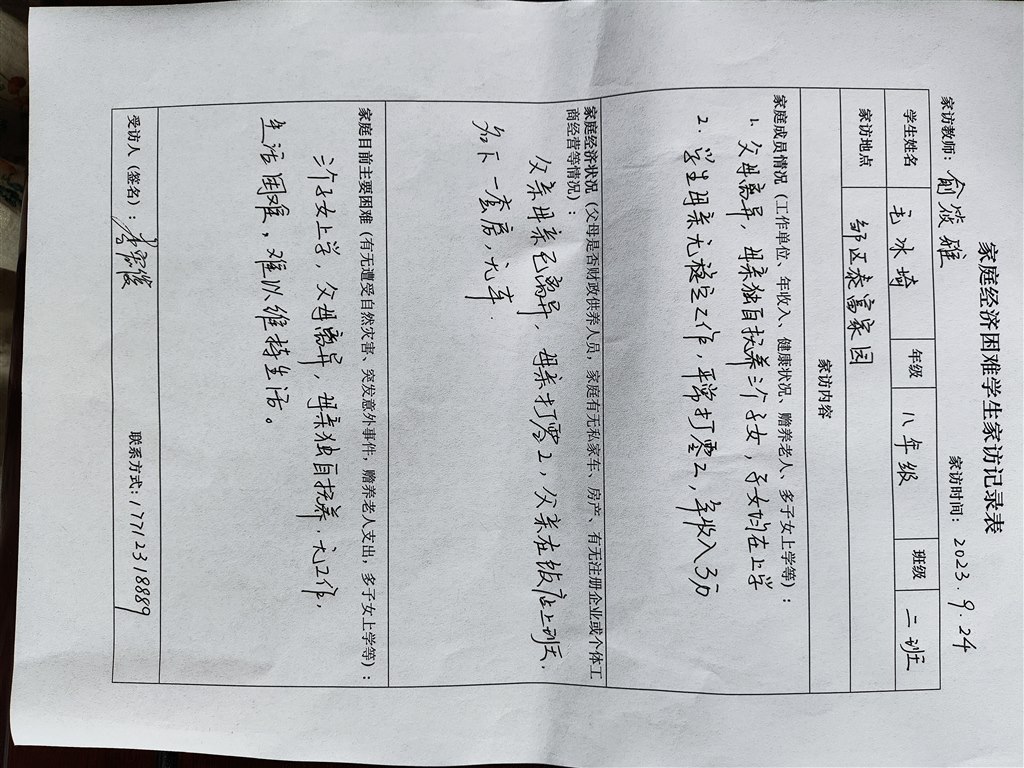 家庭经济困难学生家访记录表
家访教师：俞筱雅 家访时间：2023.9.24
学生姓名 毛冰埼 年级 八年级 班级 二班
家访地点 邹区泰富家园
家访内容
家庭成员情况（工作单位、年收入、健康状况、赡养老人、多子女上学等）：
1. 父母离异，母亲独自抚养三个子女，子女均在上学
2. 学生母亲无稳定工作，平常打零工，年收入3万
家庭经济状况（父母是否财政供养人员，家庭有无私家车、房产、有无注册企业或个体工
商经营等情况）：
父亲母亲已离异，母亲打零工，父亲在饭店上班.
名下一套房，无车.
家庭目前主要困难（有无遭受自然灾害、突发意外事件，赡养老人支出，多子女上学等）：
三个子女上学，父母离异，母亲独自抚养 无工作，
生活困难，难以维持生活。
受访人（签名）： 联系方式：17712318889